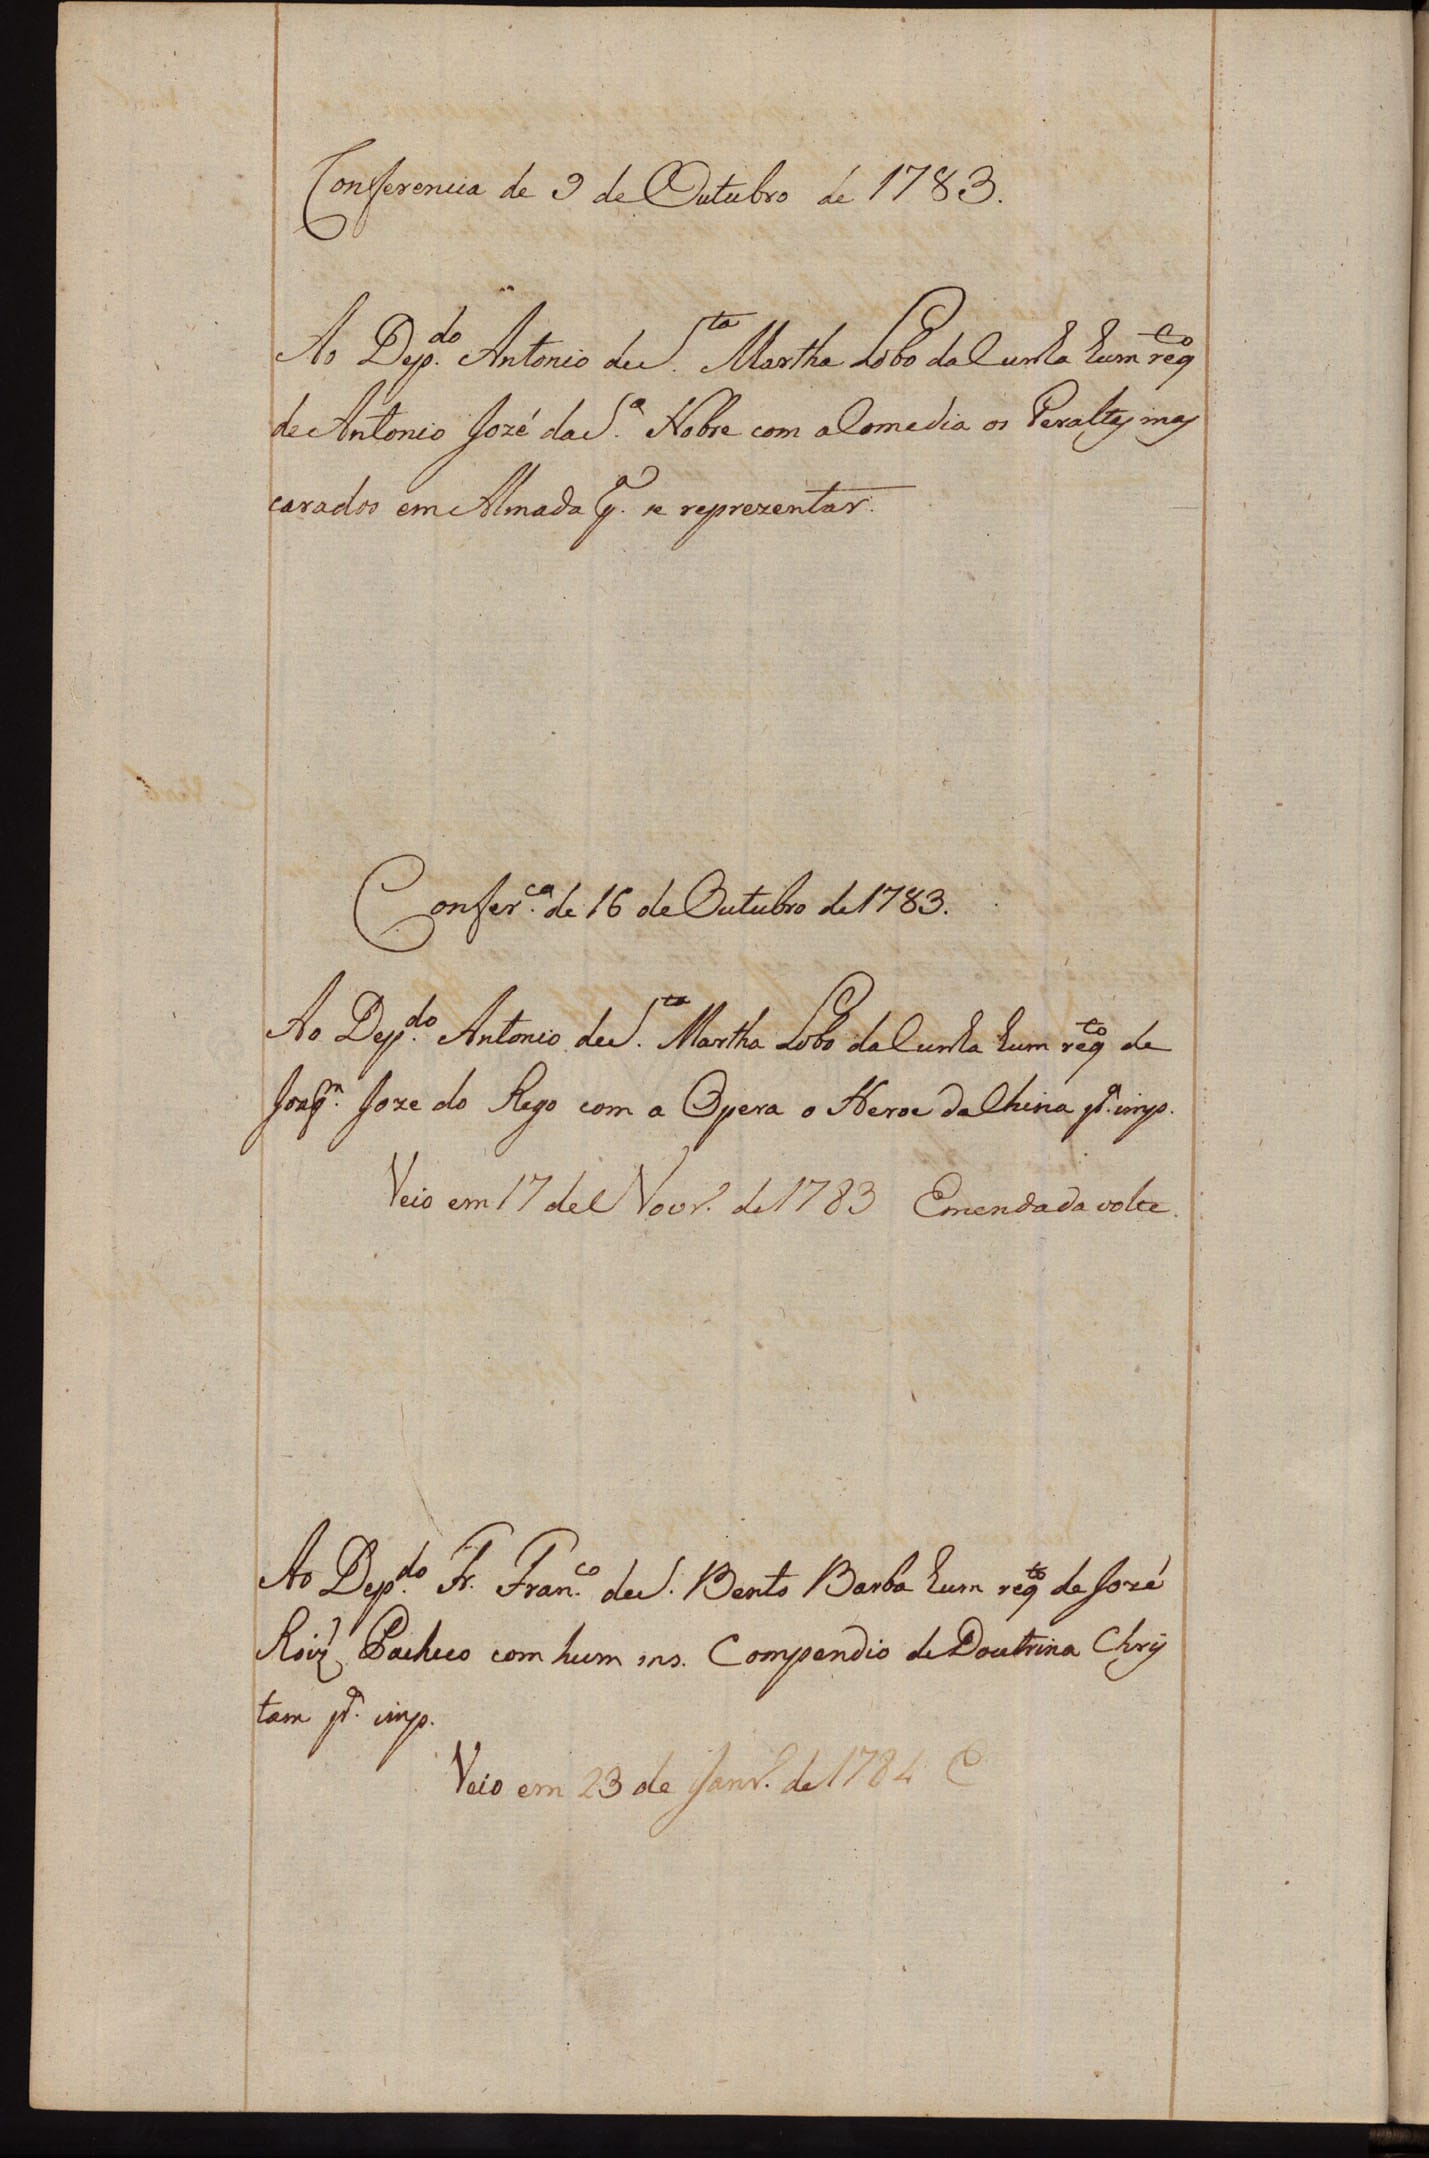 Conferencia de 9 de Outubro de 1783.
Ao Dep.do Antonio de S.ta Martha Lobo da Cunha hum req.to
de Antonio Jozé da S.a Nobre com a Comedia os Peraltas mas
carados em Almada p.a se reprezentar.
Confer.ca de 16 de Outubro de 1783.
Ao Dep.do Antonio de S.ta Martha Lobo da Cunha hum req.to de
Joaq.m Joze do Rego com a Opera o Heroe da China p.a imp.
Veio em 17 de Novr.o de 1783 Emendada volte.
Ao Dep.do Fr. Fran.co de S. Bento Barba hum req.to de Jozé
Roiz Pacheco com hum ms. Compendio de Doutrina Chris
tam p.a imp.
Veio em 23 de Janr.o de 1784 C